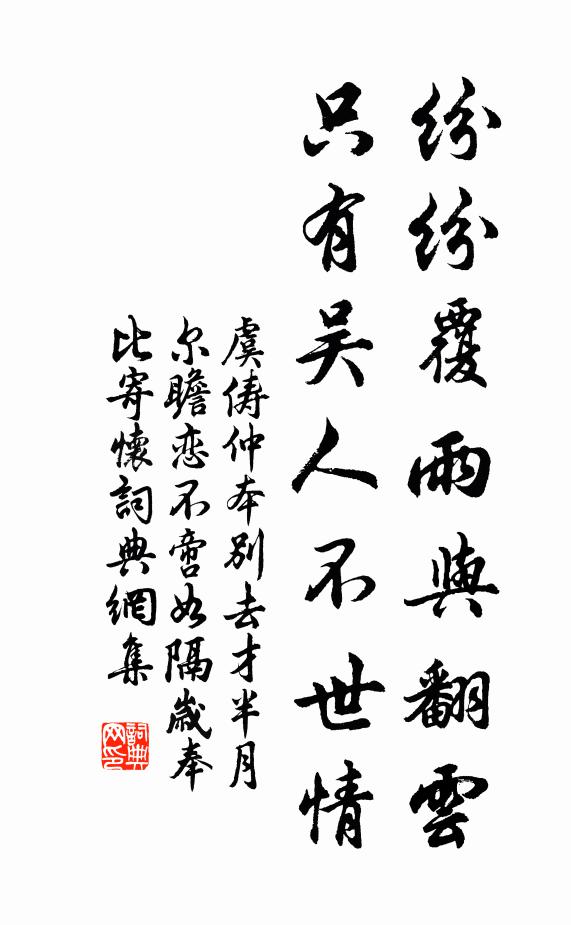 紛紛覆雨與翻雲
只有吴人不世情
虞俦仲本別去才半月
尔瞻恋不啻如隔歲奉
比寄懷詞典網集
詞典网印